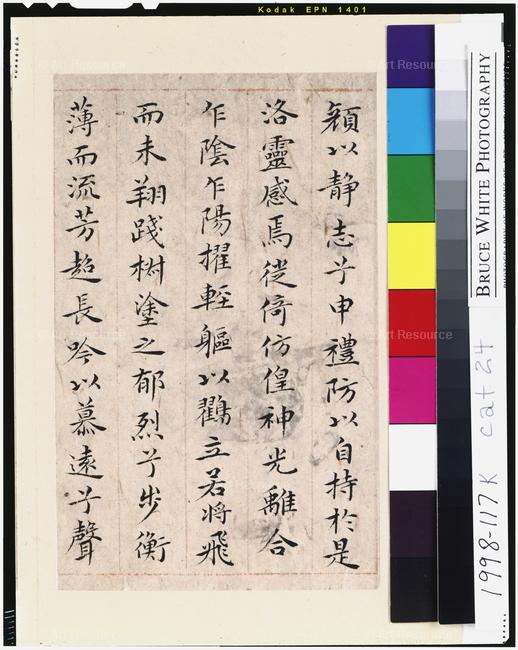 Kodak EPN 1401
顔以静志兮申禮防以自持於是
洛靈感焉徙倚仿偟神光離合
乍陰乍陽擢輕軀以鸛立若將飛
而未翔踐椒塗之郁烈兮步衡
薄而流芳超長吟以慕遠兮聲
BRUCE WHITE PHOTOGRAPHY
1998-117K cat 24